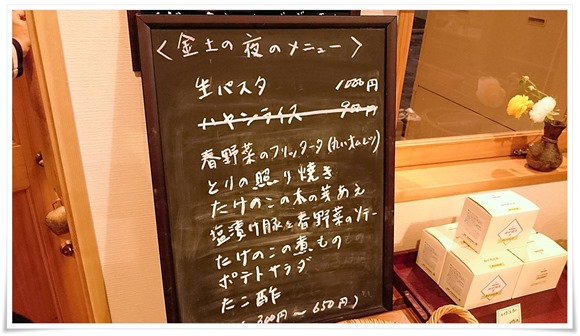 〈金土の夜のメニュー〉
生パスタ 1000円
ハヤシライス 900円
春野菜のフリッタータ(丸いオムレツ)
とりの照り焼き
たけのこの木の芽あえ
塩漬け豚と春野菜のソテー
たけのこの煮もの
ポテトサラダ
たこ酢
300円〜650円)